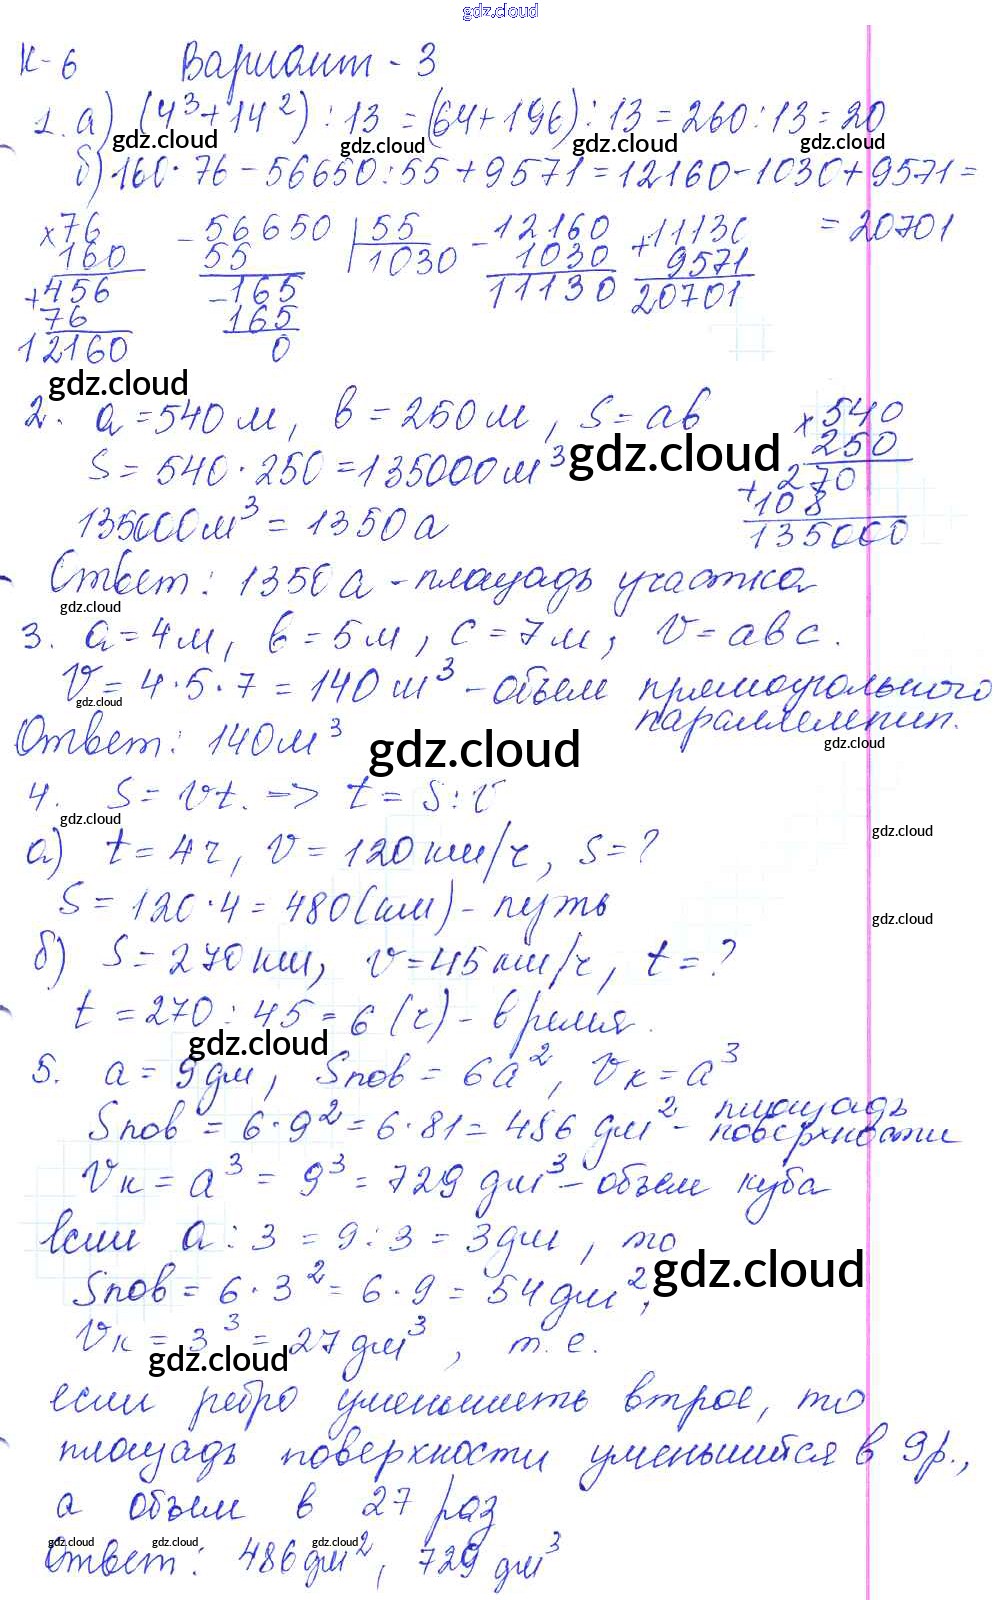 gdz.cloud
К-6 Вариант - 3
1. а) (4³+14²) : 13 = (64+196) : 13 = 260 : 13 = 20
gdz.cloud gdz.cloud gdz.cloud gdz.cloud
б) 160 · 76 - 56650 : 55 + 9571 = 12160 - 1030 + 9571 =
= 20701
×76 -56650 |55 -12160 +11130
160 55 1030 1030 9571
+456 -165 11130 20701
76 165
12160 0
gdz.cloud
2. a = 540 м, b = 250 м, S = ab ×540
S = 540 · 250 = 135000 м³ gdz.cloud 250
+270
135000 м³ = 1350 а 108
135000
Ответ: 1350 а - площадь участка
gdz.cloud
3. a = 4 м, b = 5 м, c = 7 м, V = abc.
V = 4 · 5 · 7 = 140 м³ - объем прямоугольного
gdz.cloud параллелепип.
Ответ: 140 м³ gdz.cloud gdz.cloud
4. S = Vt. => t = S : V
gdz.cloud gdz.cloud
а) t = 4 ч, V = 120 км/ч, S = ?
S = 120 · 4 = 480 (км) - путь gdz.cloud
б) S = 270 км, V = 45 км/ч, t = ?
t = 270 : 45 = 6 (ч) - время.
gdz.cloud
5. a = 9 дм, Sпов = 6a², Vк = a³
Sпов = 6 · 9² = 6 · 81 = 486 дм² - площадь
поверхности
Vк = a³ = 9³ = 729 дм³ - объем куба
если a : 3 = 9 : 3 = 3 дм, то
gdz.cloud
Sпов = 6 · 3² = 6 · 9 = 54 дм²,
Vк = 3³ = 27 дм³, т.е.
gdz.cloud
если ребро уменьшить втрое, то
площадь поверхности уменьшится в 9 р.,
а объем в 27 раз
gdz.cloud gdz.cloud gdz.cloud
Ответ: 486 дм², 729 дм³